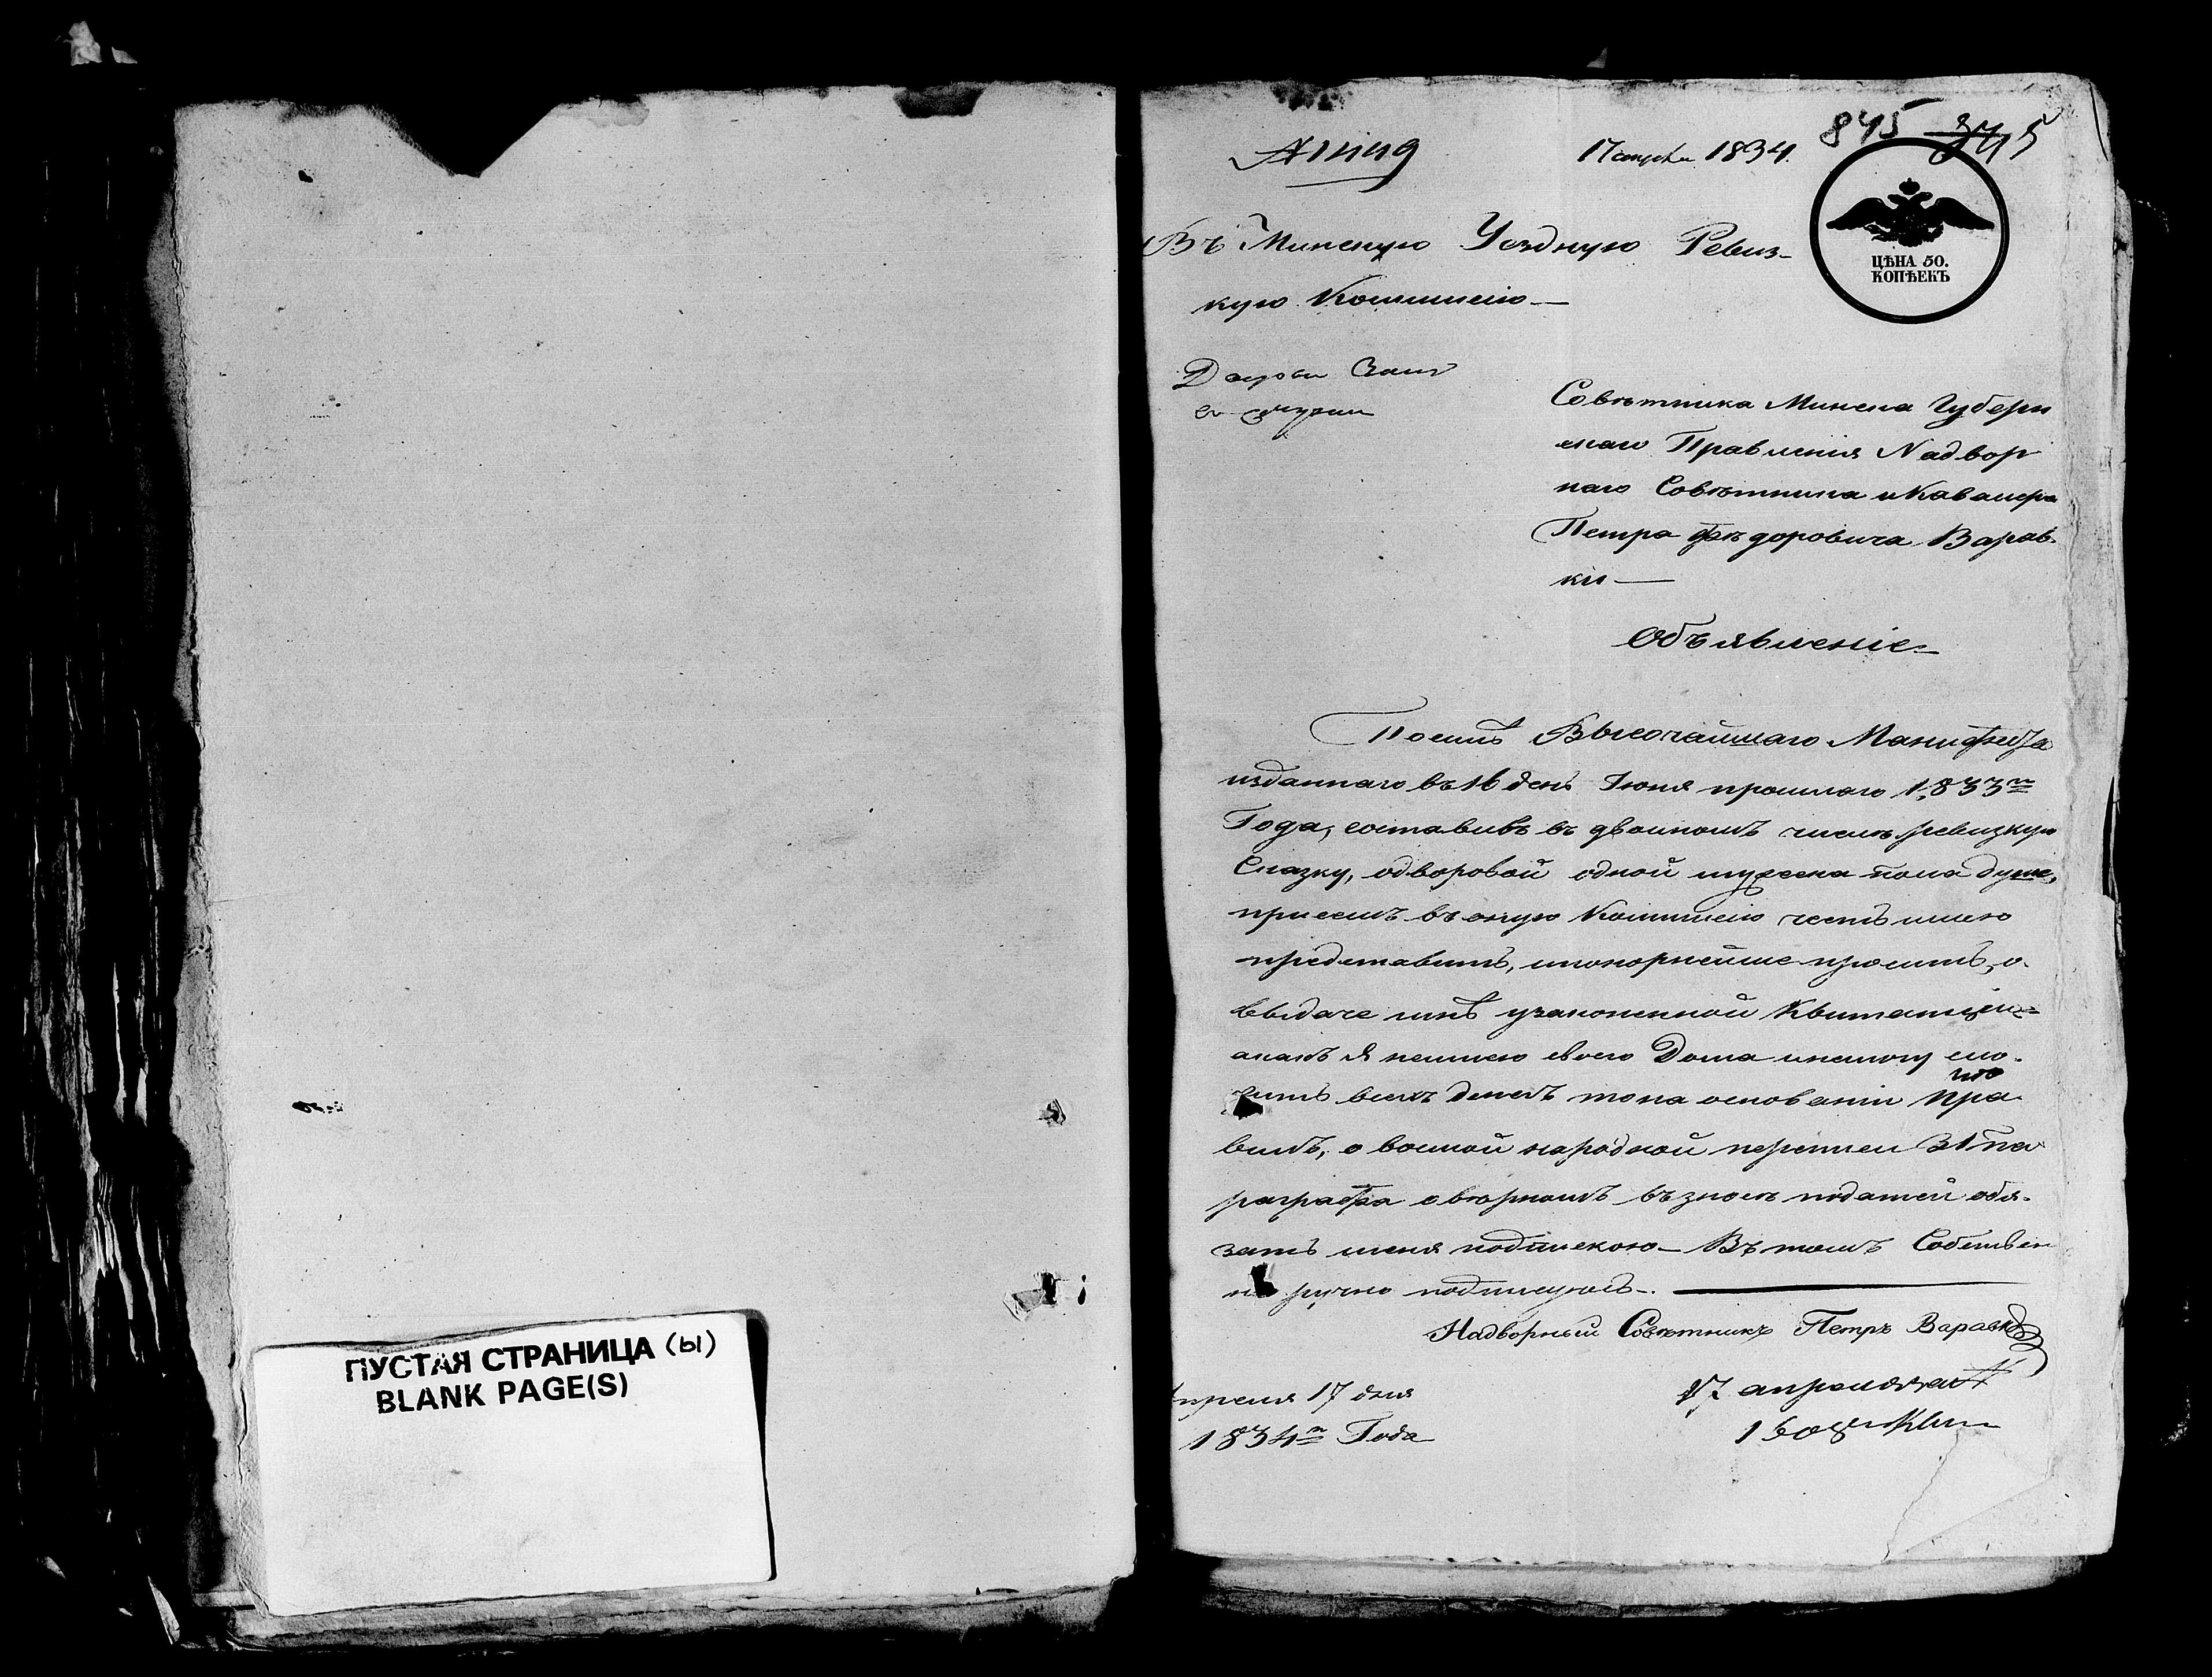 ПУСТАЯ СТРАНИЦА (ы)
BLANK PAGE(S)
845 3445
17 апреля 1834.
ЦѢНА 50.
КОПѢЕКЪ
Въ Минскую Уездную Ревиз-
кую Коммисію
Советника Минска Губерн
скаго Правленія Надвор
наго Советника и Кавалера
Петра Фѣдоровича Варав-
ки
Объявленіе
Поситъ Высочайшаго Манифеста
изданнаго въ 16 день Іюня прошлаго 1833го
Года, составивъ въ двойномъ числѣ ревизкую
Сказку, одворовой одной мужеска пола душе,
присемъ въ оную Коммисію честь имею
представить, ипокорнейше просить, о
выдаче мнѣ узаконенной Квитанцеи
акакъ я неимею своего Дома инемогу сло-
жить всехъ денегъ то на основаніи Пра
что
вилъ, о восмой народной переписи 31 па
раграфа оверномъ възносе податей обя-
зать меня подпискою Въ томъ Собствен
но ручно подписуюсь.
Надворный Советникъ Петръ Варавка
апреля 17 дня
1834го Года
17 апреля